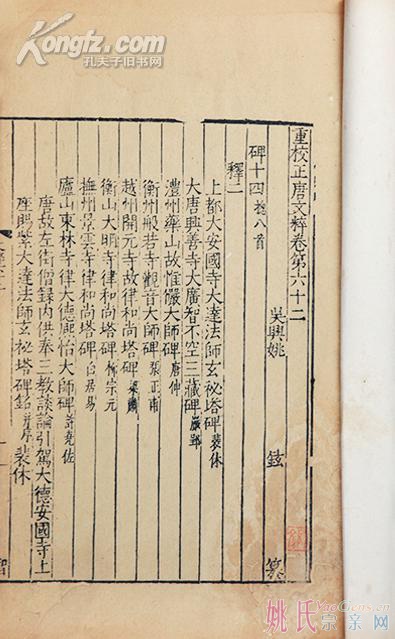 Kongfz.com
孔夫子旧书网
重校正唐文粹卷第六十二
吳興姚 鉉 纂
碑十四 揔八首
釋二
上都大安國寺大達法師玄秘塔碑 裴休
大唐興善寺大廣智不空三藏碑 嚴郢
澧州藥山故惟儼大師碑 唐伸
衡州般若寺觀音大師碑 張正甫
越州開元寺故律和尚塔碑 梁肅
衡山大明寺律和尚塔碑 柳宗元
撫州景雲寺律和尚塔碑 白居易
廬山東林寺律大德熙怡大師碑 許堯佐
唐故左街僧録內供奉三教談論引駕大德安國寺上
座賜紫大達法師玄秘塔碑銘 并序 裴休
姚氏宗亲网
YaoCnqns.com